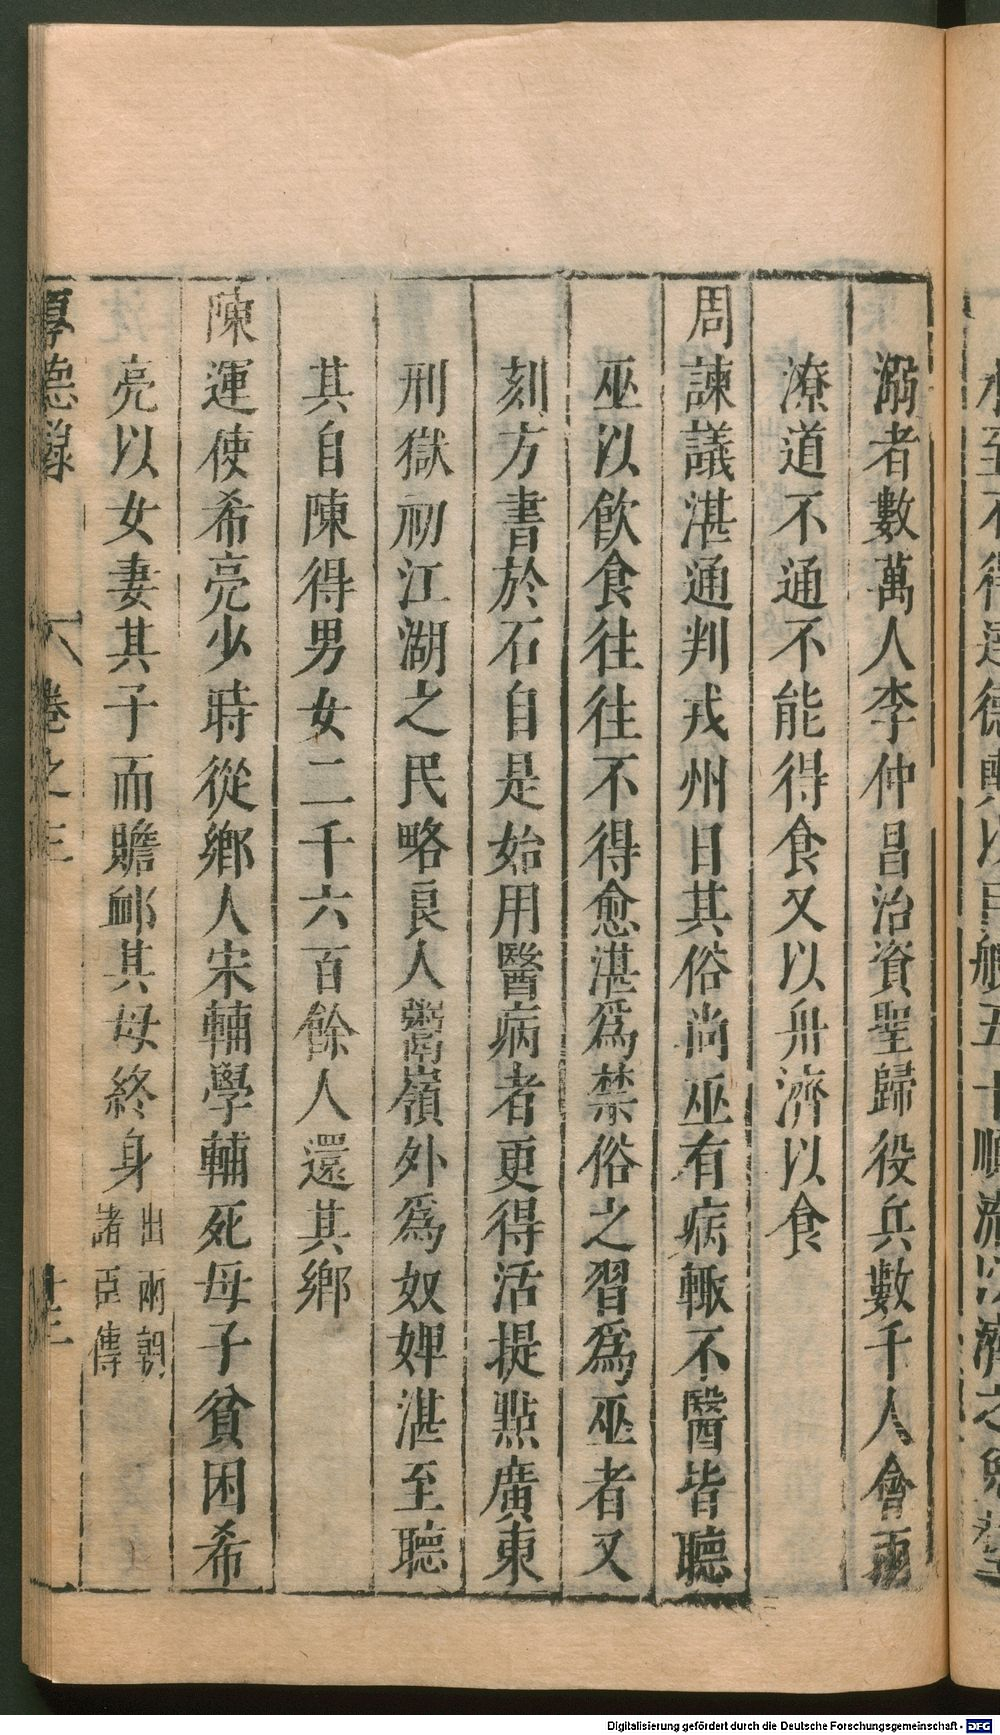 溺者數萬人李仲昌治資聖歸役兵數千人會雨
潦道不通不能得食又以舟濟以食
周諫議湛通判戎州日其俗尚巫有病輙不醫皆聽
巫以飲食往往不得愈湛爲禁俗之習爲巫者又
刻方書於石自是始用醫病者更得活提點廣東
刑獄初江湖之民略良人鬻嶺外爲奴婢湛至聽
其自陳得男女二千六百餘人還其鄉
陳運使希亮少時從鄉人宋輔學輔死母子貧困希
亮以女妻其子而贍䘏其母終身出兩朝
諸臣傳
厚德錄 卷之三
Digitalisierung gefördert durch die Deutsche Forschungsgemeinschaft - DFG